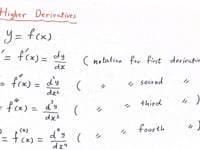 Higher Derivatives
y = f(x)
' = f'(x) = dy/dx ( notation for first derivativ
= f''(x) = d²y/dx² ( " " second "
= f'''(x) = d³y/dx³ ( " " third " )
= f⁽⁴⁾(x) = d⁴y/dx⁴ ( " " fourth " )